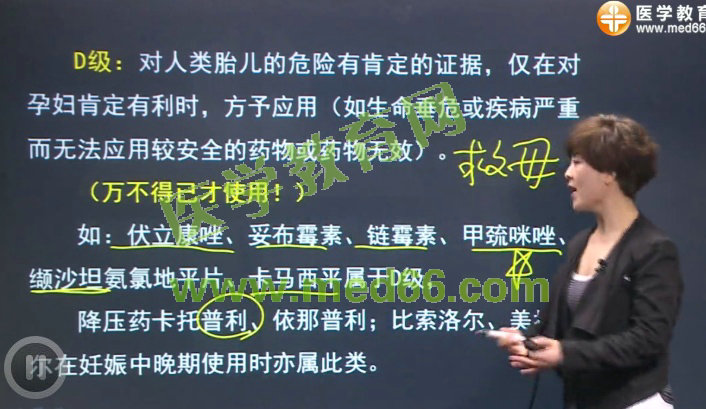 医学教育
www.med66
D级：对人类胎儿的危险有肯定的证据，仅在对
孕妇肯定有利时，方予应用（如生命垂危或疾病严重
而无法应用较安全的药物或药物无效）。
救母
（万不得已才使用！）
如：伏立康唑、妥布霉素、链霉素、甲巯咪唑、
缬沙坦氨氯地平片、卡马西平属于D级。
降压药卡托普利、依那普利；比索洛尔、美
尔在妊娠中晚期使用时亦属此类。
医学教育网
www.med66.com